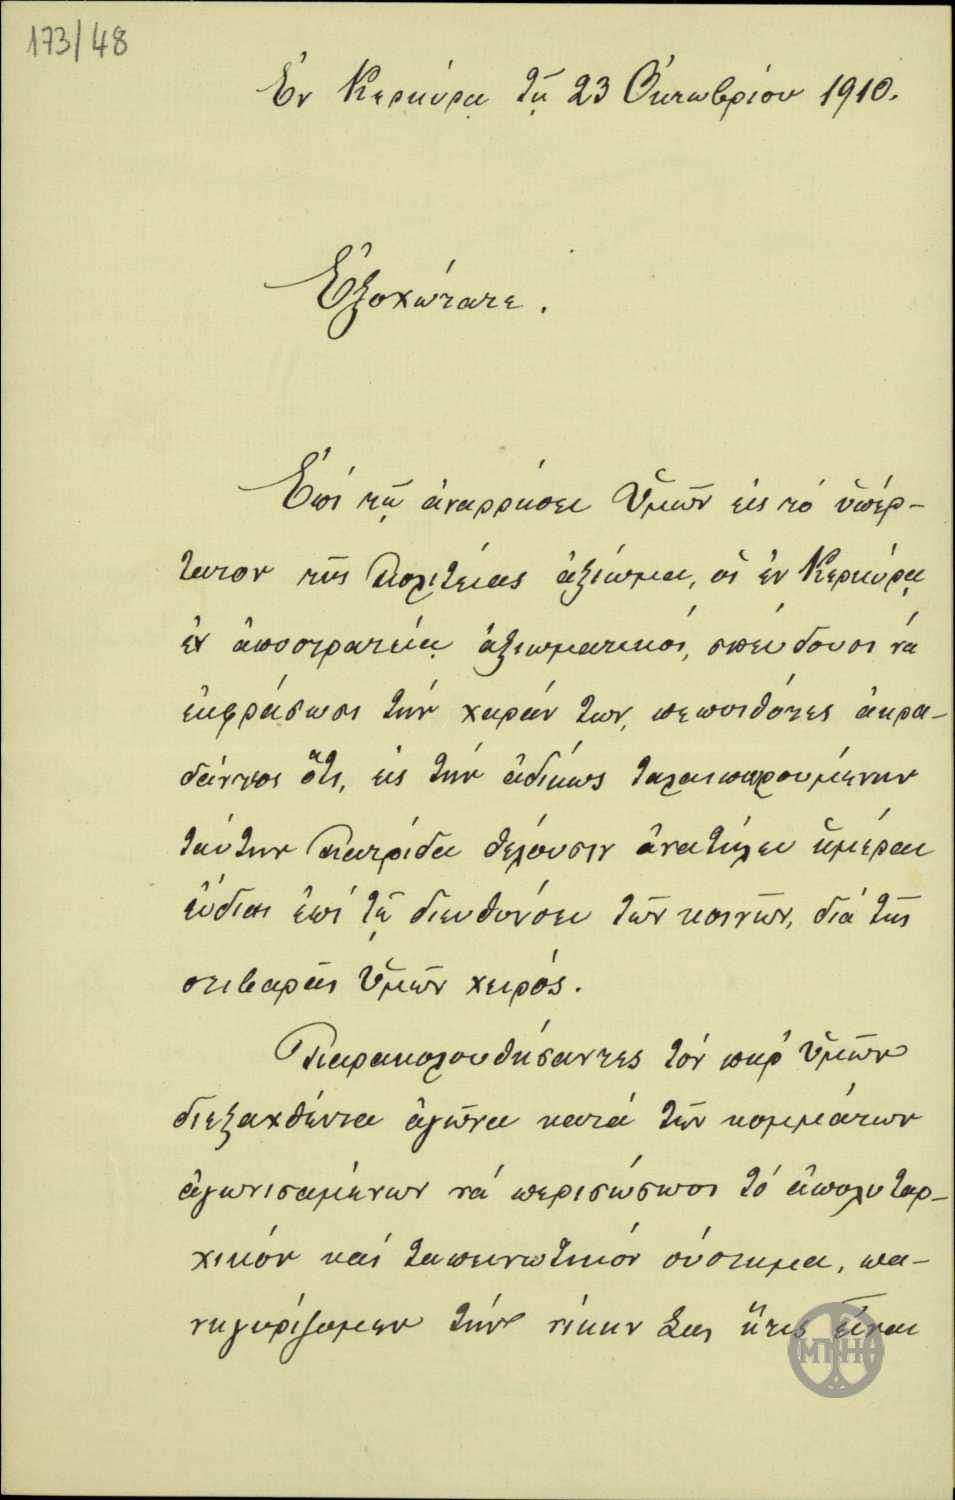 173/48
Ἐν Κερκύρᾳ τῇ 23 Ὀκτωβρίου 1910.
Ἐξοχώτατε.
Ἐπὶ τῇ ἀναρρήσει Ὑμῶν εἰς τὸ ὑπέρ-
τατον τῆς Πολιτείας ἀξίωμα, οἱ ἐν Κερκύρᾳ
ἐν ἀποστρατείᾳ ἀξιωματικοί, σπεύδουσι νὰ
ἐκφράσωσι τὴν χαράν των, πεποιθότες ἀκρα-
δάντως ὅτι, εἰς τὴν ἀδίκως ταλαιπωρουμένην
ταύτην Πατρίδα θέλουσιν ἀνατείλει ἡμέραι
εὔδιαι ἐπὶ τῇ διευθύνσει τῶν κοινῶν, διὰ τῆς
στιβαρᾶς Ὑμῶν χειρός.
Παρακολουθήσαντες τὸν παρ' Ὑμῶν
διεξαχθέντα ἀγῶνα κατὰ τῶν κομμάτων
ἀγωνισαμένων νὰ περισώσωσι τὸ ἀπολυταρ-
χικὸν καὶ ταπεινωτικὸν σύστημα, πα-
νηγυρίζομεν τὴν νίκην Σας ἥτις εἶναι
ΜΠΗ